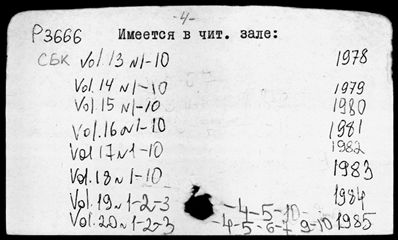 -4-
P3666 Имеется в чит. зале:
СБК Vol. 13 N1-10 1978
Vol. 14 N1-10 1979
Vol. 15 N1-10 1980
Vol. 16 N1-10 1981
Vol 17 N1-10 1982
Vol. 18 N1-10 1983
Vol. 19 N1-2-3 -4-5-10- 1984
Vol. 20 N1-2-3 -4-5-6-7 9-10 1985